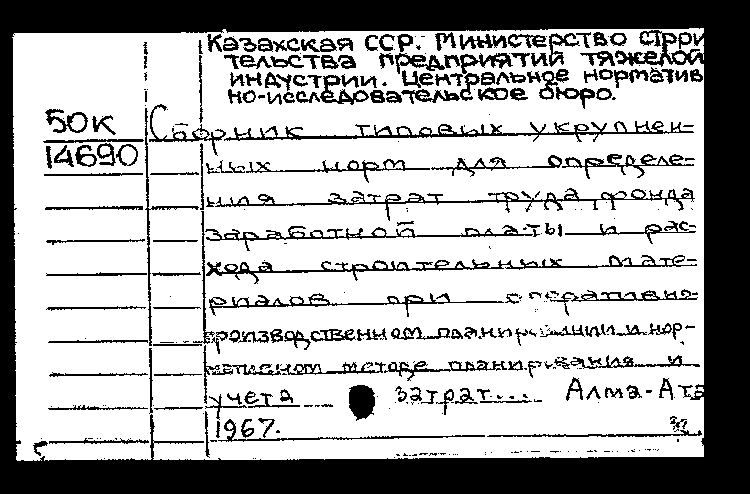 Казахская ССР. Министерство строи
тельства предприятий тяжелой
индустрии. Центральное норматив
но-исследовательское бюро.
50к Сборник типовых укрупнен-
14690 ных норм для определе-
ния затрат труда, фонда
заработной платы и рас-
хода строительных мате-
риалов при оперативно-
производственном планировании и нор-
мативном методе планирования и
учета затрат... Алма-Ата
1967.